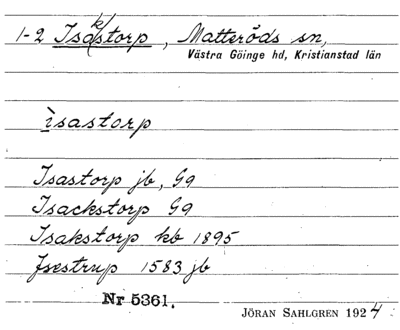 1-2 Isakstorp, Matteröds sn,
Västra Göinge hd, Kristianstad län
ìsastorp
Isastorp jb, Gg
Isackstorp Gg
Isakstorp kb 1895
Jsestrup 1583 jb
Nr 5361.
JÖRAN SAHLGREN 1924